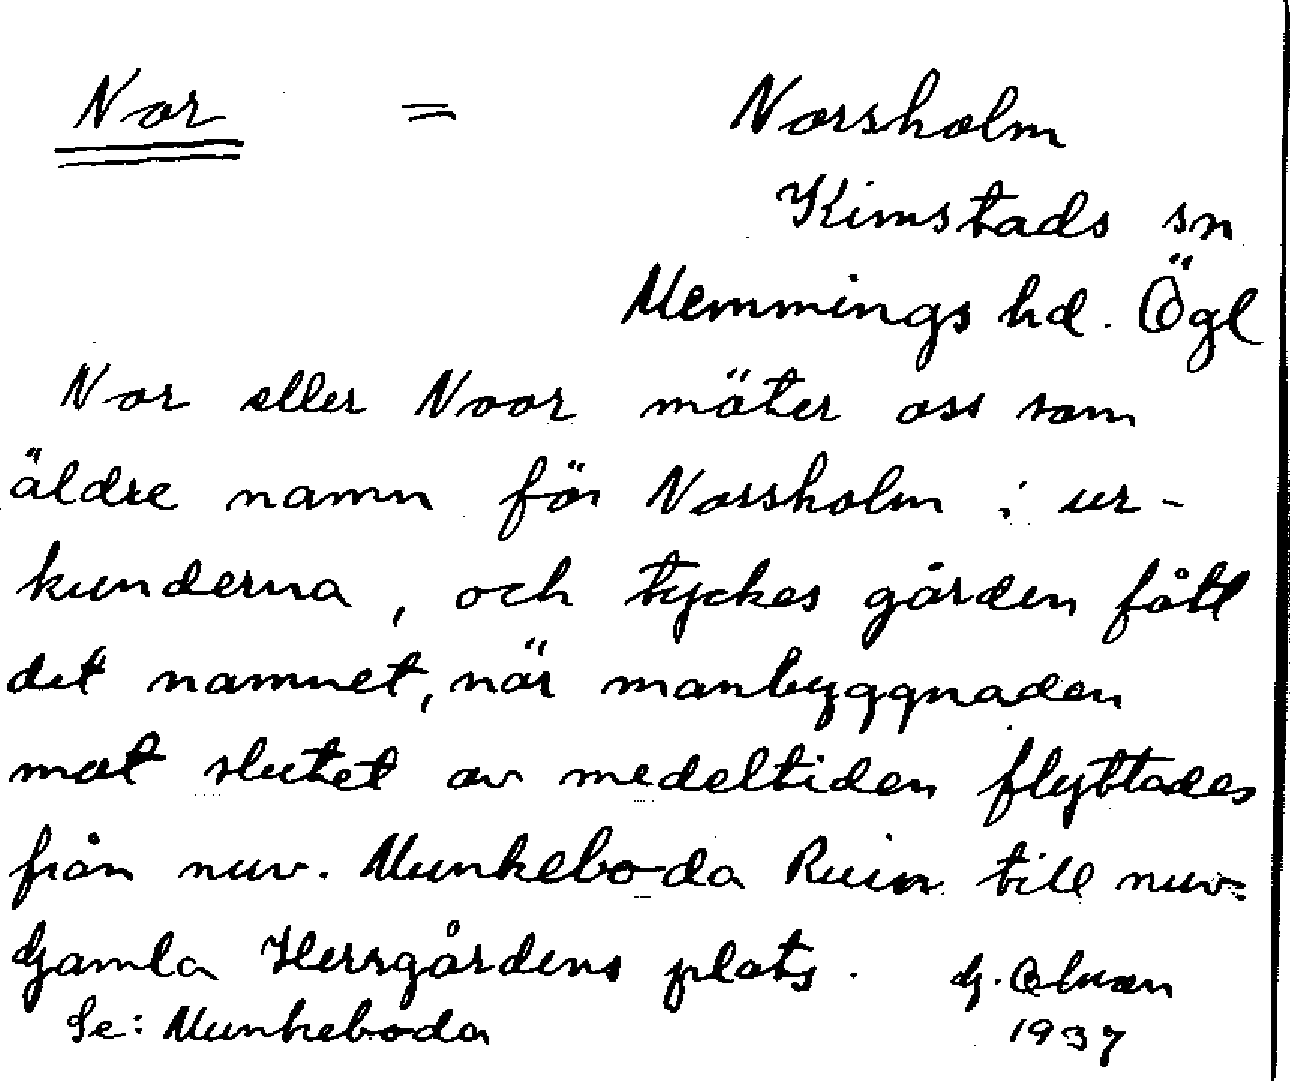 Nor = Norsholm
Kimstads sn
Memmings hd. Ögl
Nor eller Noor möter oss som
äldre namn för Norsholm i ur-
kunderna, och tyckes gården fått
det namnet, när manbyggnaden
mot slutet av medeltiden flyttades
från nuv. Munkeboda Ruin till nuv.
Gamla Herrgårdens plats. G.
Se: Munkeboda 1937